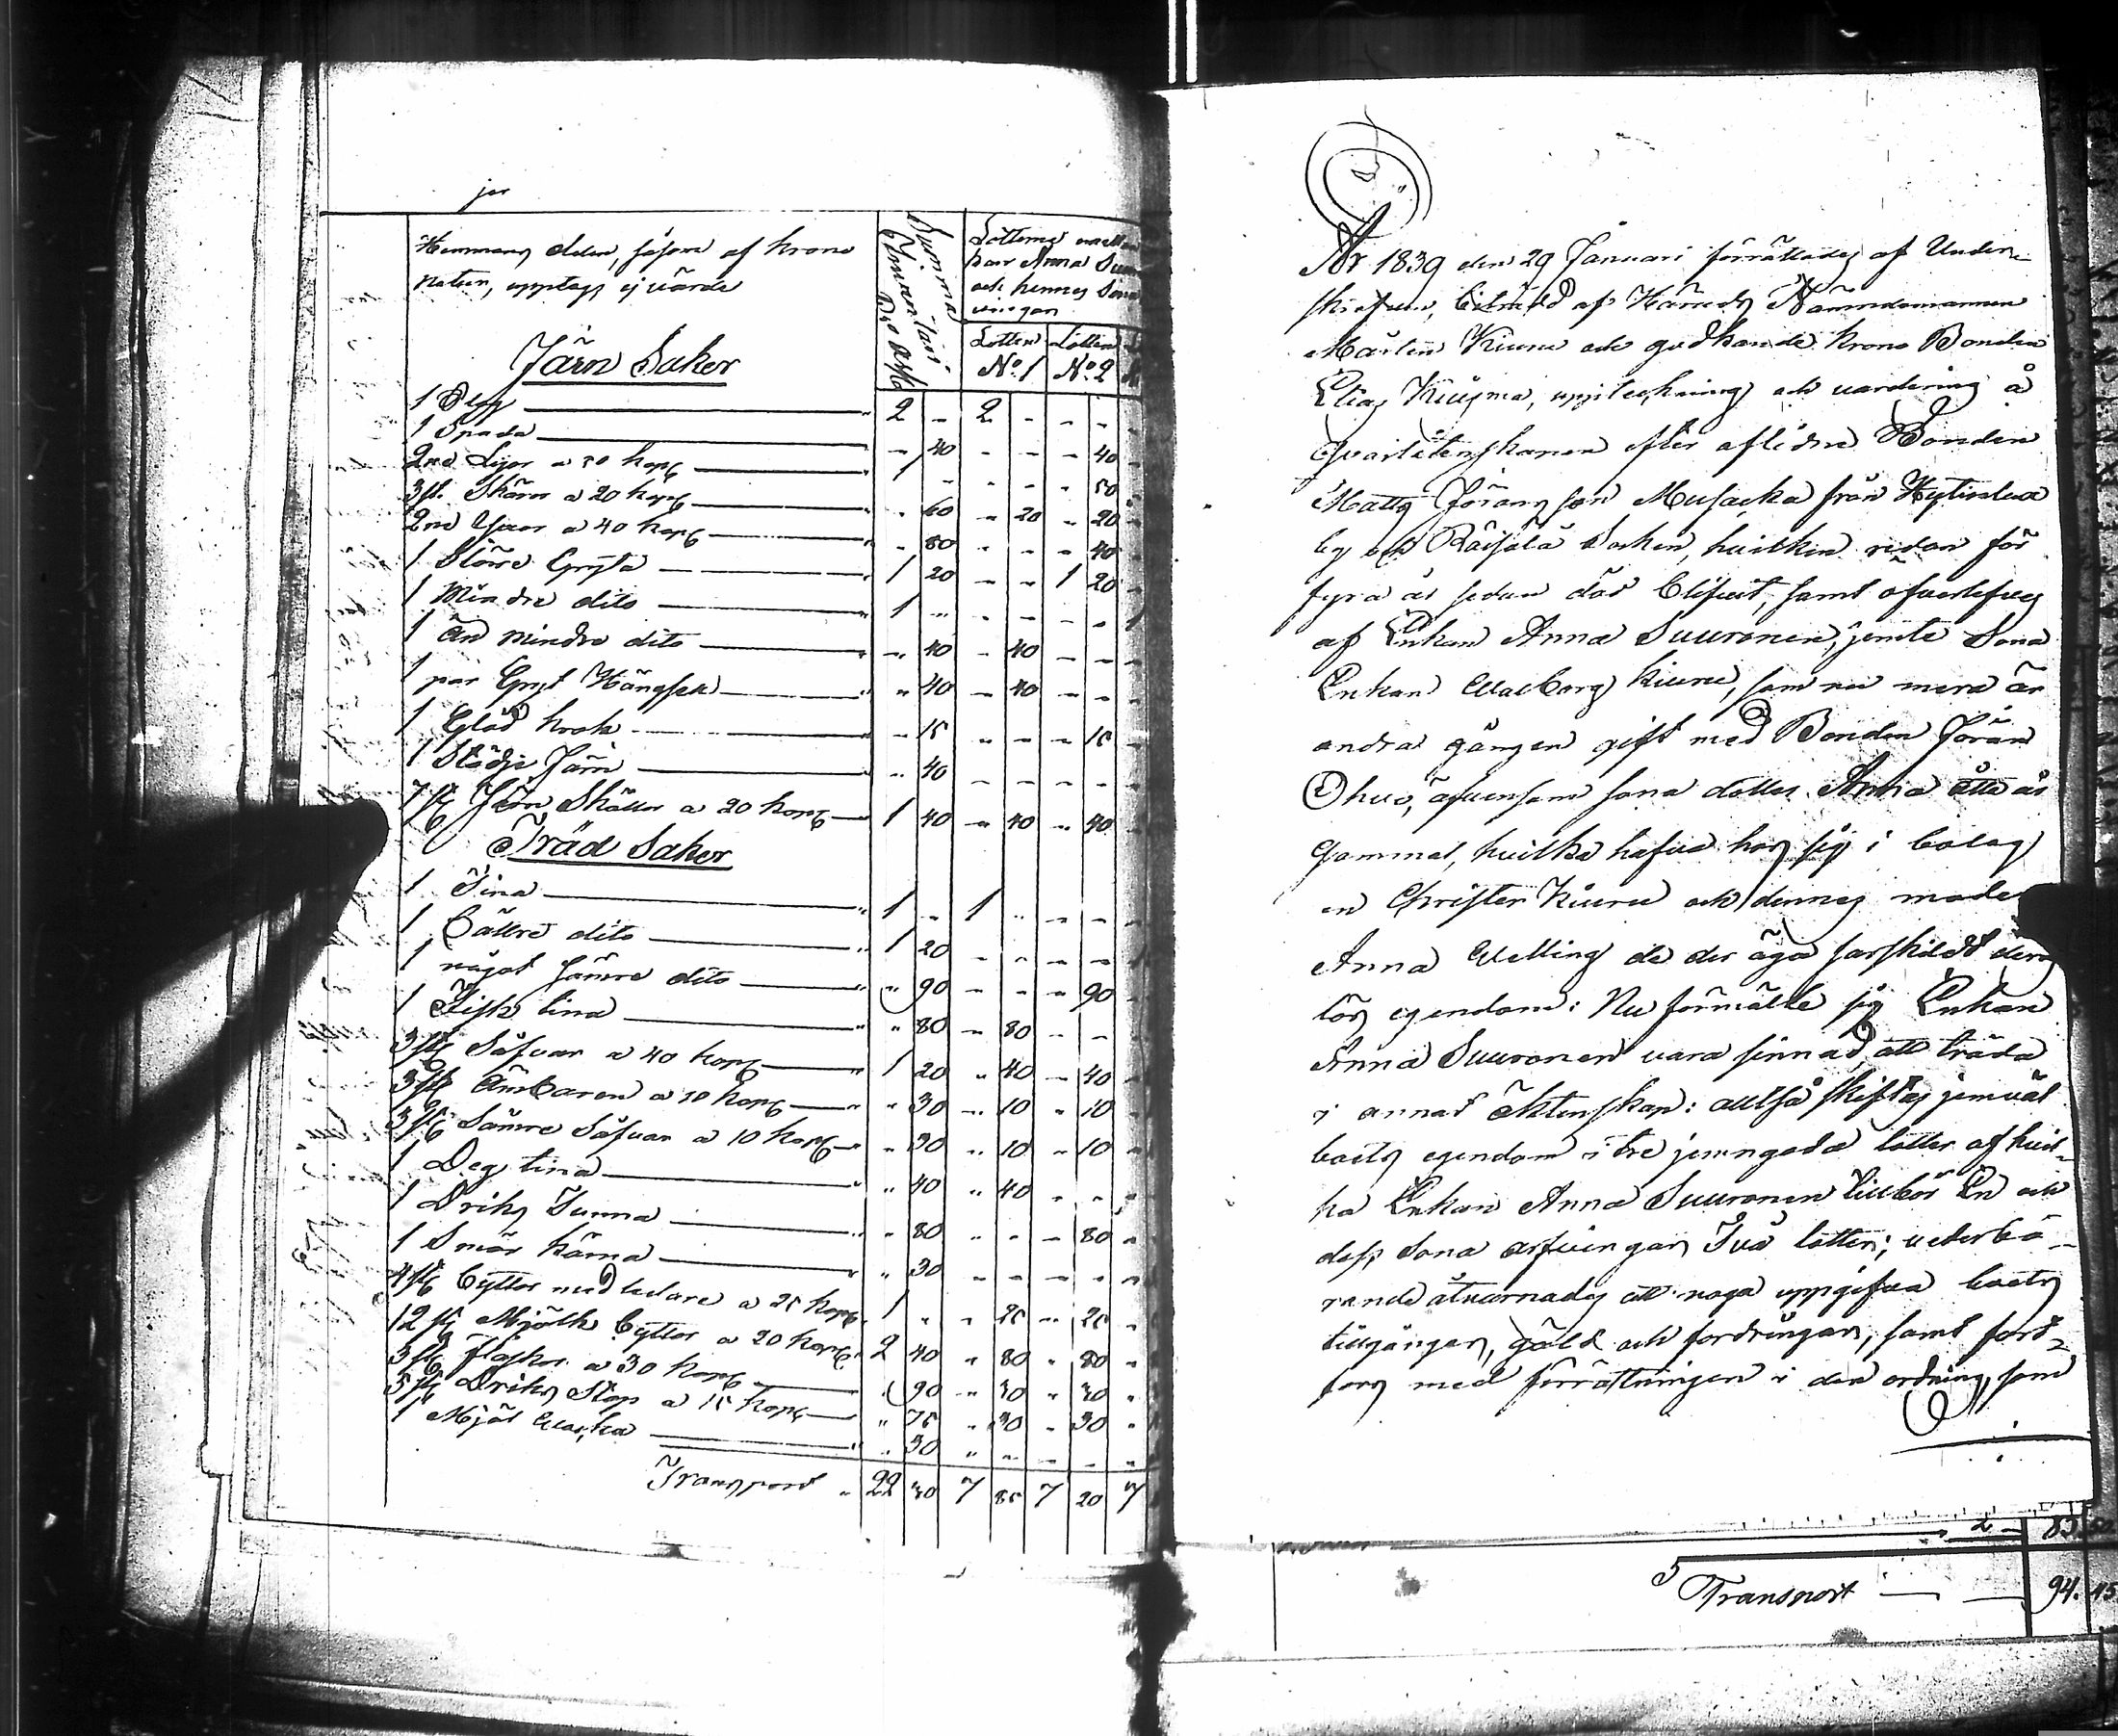 jer
Hemmans delen, såsom af krono
natur, upptages ej värde
Summa
Inventarii
Lotterne
kan Anna
och hennes Sona
Lotten Lotten
No. 1 No. 2
Järn Saker
1 Plog " 2 - 2 - - -
1 Spada " - 40 - - - 40
2ne Lijor a 50 kopk " 1 - - - - 50
3st. Skäror a 20 kopk " - 60 - 20 - 20
2ne Yxor a 40 kopk " - 80 - - - 40
1 Större Gryta " 1 20 - - 1 20
1 Mindre dito " 1 - - - - -
1 än mindre dito " - 40 - 40 - -
1 par Gryt Hängsel " - 40 - 40 - -
1 Glöd krok " - 15 - - - 15
1 Stödje Järn " - 40 - - - -
7 stk Järn Skållor a 20 kopk 1 40 - 40 - 40
Träd Saker
1 Tina " 1 - 1 - - -
1 bättre dito " 1 20 - - - -
1 något sämre dito " - 90 - - - 90
1 Fisk tina " - 80 - 80 - -
3 stk Såfvar a 40 kopk " 1 20 - 40 - 40
3 stk Ämbaren a 10 kopk " - 30 - 10 - 10
3 stk Sämre Såfvar a 10 kopk " - 30 - 10 - 10
1 Deg tina " - 40 - 40 - -
1 Driks Tunna " - 80 - - - 80
1 Smör kärna " - 30 - - - -
4 stk byttor med a 25 kopk 1 - - 25 - 25
12 stk Mjölk byttor a 20 kopk 2 40 - 80 - 80
3 stk flaskor a 30 kopk " - 90 - 30 - 30
5 stk Driks Stop a 15 kopk " - 75 - 30 - 30
1 Mjöl " - 30 - - - -
Transport " 22 30 7 85 7 20 7
År 1839 den 29 Januari förrättades af Under-
skrefven, biträdd af Härads Nämndemannen
Mårten Kiuru och godkände krono Bonden
Elias Kiusma, uppteckning och värdering å
qvarlåtenskapen efter aflidne Bonden
Matts Jörans son Musacka från
by och Räisälä Socken, hvilken redan för
fyra år sedan död blifvit, samt öfverlefves
af Enkan Anna Suuronen, jemte Sona
Enkan Walborg Kiuru, som nu mera är
andra gången gift med Bonden Jöran
Ohvo, äfvensom sona dotter Anna åtta år
gammal, hvilka hafva hos sig i bolag
en Christer Kiuru och dennes moder
Anna Welling de der äga särskildt deras
lös egendom: Nu förmälte sig Enkan
Anna Suuronen vara sinnad att träda
i annat äktenskap: alltså skiftas jemväl
boets egendom i tre jemngoda lotter af hvil-
ka Enkan Anna Suuronen tillhör En och
dess Sona arfvingar Två lotter; vederbö-
rande åtvarnades att noga uppgifva boets
tillgångar, gäld och fordringar, samt fort-
fors med förrättningen i den ordning, som
2 - 83
Transport 94. 45